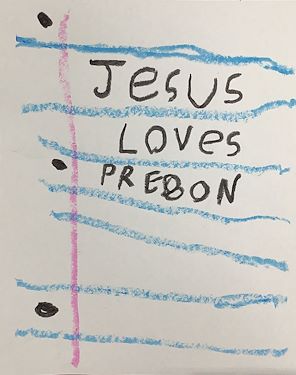 Jesus
Loves
PREBON